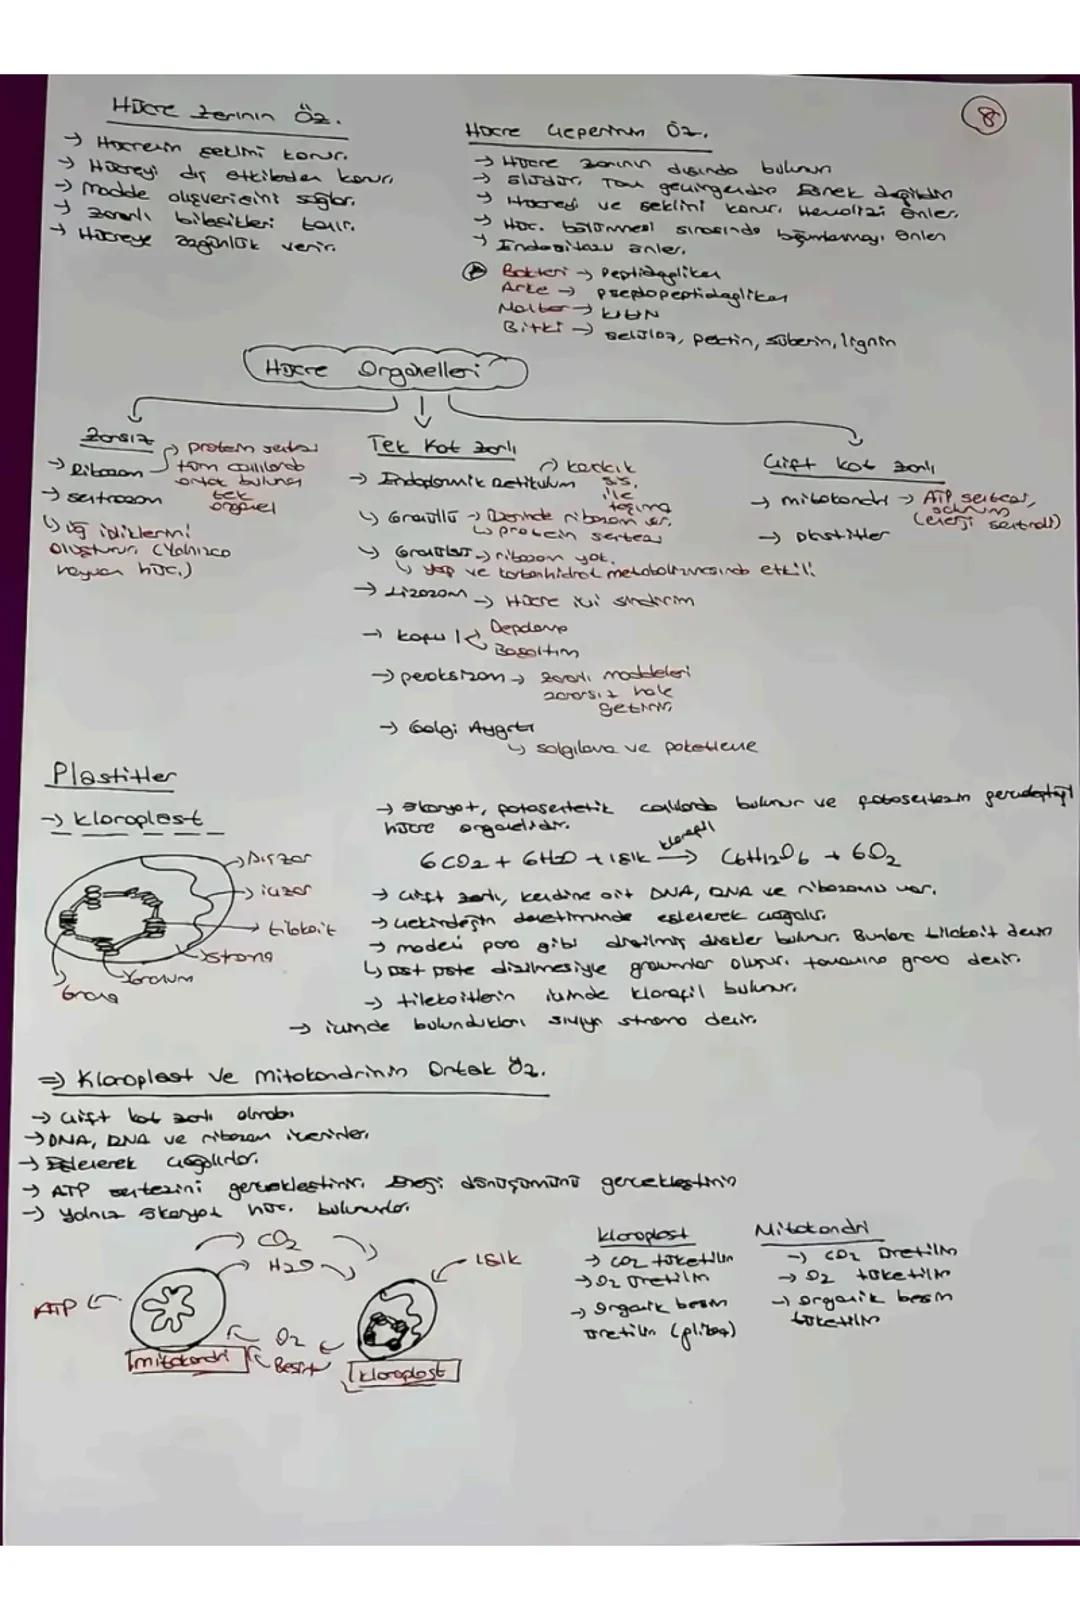 Hücre Zarının Öz.
→ Hücrenin şeklini korur.
→ Hücreyi dış etkilerden korur.
→ Madde alışverişini sağlar.
→ Zararlı bileşikleri tanır.
→ Hücreye özgünlük verir.
Hücre Çeperinin Öz.
→ Hücre zarının dışında bulunur
→ Ölüdür. Tam geçirgendir Esnek değildir
→ Hücreyi ve şeklini korur. Hemolizi önler.
→ Hüc. bölünmesi sırasında boğumlanmayı önler
→ Endositozu önler.
Bakteri → Peptidoglikan
Arke → pseudopeptidoglikan
Mantar → kitin
Bitki → selüloz, pektin, süberin, lignin
8
Hücre Organelleri
Zarsız
→ Ribozom → protein sentezi
tüm canlılarda
ortak bulunan
tek
organel
→ sentrozom
↳ iğ ipliklerini
oluşturur. (Yalnızca
hayvan hüc.)
Tek Kat zarlı
→ Endoplazmik Retikulum → kanalcık
sis.
ile
taşıma
↳ Granüllü → Üzerinde ribozom var.
↳ protein sentezi
↳ Granülsüz → ribozom yok.
↳ yağ ve karbonhidrat metabolizmasında etkili.
→ Lizozom → Hücre içi sindirim
→ koful → Depolama
Boşaltım
→ peroksizom → zararlı maddeleri
zararsız hale
getirir.
→ Golgi Aygıtı
↳ salgılama ve paketleme
Çift kat zarlı
→ mitokondri → ATP sentezi,
solunum
(enerji santrali)
→ plastitler
Plastitler
→ kloroplast
Dış zar
iç zar
tilakoit
stroma
granum
Grana
→ Ökaryot, fotosentetik canlılarda bulunur ve fotosentezin gerçekleştiği
hücre organelidir.
6CO2 + 6H2O + ışık → C6H12O6 + 6O2
klorofil
→ Çift zarlı, kendine ait DNA, RNA ve ribozomu var.
→ Çekirdeğin denetiminde eşlenerek çoğalır.
→ madeni para gibi dizilmiş diskler bulunur. Bunlara tilakoit denir
↳ Üst üste dizilmesiyle granumlar oluşur. tamamına grana denir.
→ tilakoitlerin içinde klorofil bulunur.
→ içinde bulundukları sıvıya stroma denir.
⇒ Kloroplast ve Mitokondrinin Ortak Öz.
→ Çift kat zarlı olmaları
→ DNA, RNA ve ribozom içerirler.
→ Eşlenerek çoğalırlar.
→ ATP sentezini gerçekleştirir. Enerji dönüşümünü gerçekleştirir
→ Yalnız ökaryot hüc. bulunurlar.
CO2
H2O
ışık
ATP
O2
Besin
mitokondri
kloroplast
kloroplast
→ CO2 tüketilir
→ O2 üretilir
→ organik besin
üretilir
Mitokondri
→ CO2 üretilir
→ O2 tüketilir
→ organik besin
tüketilir